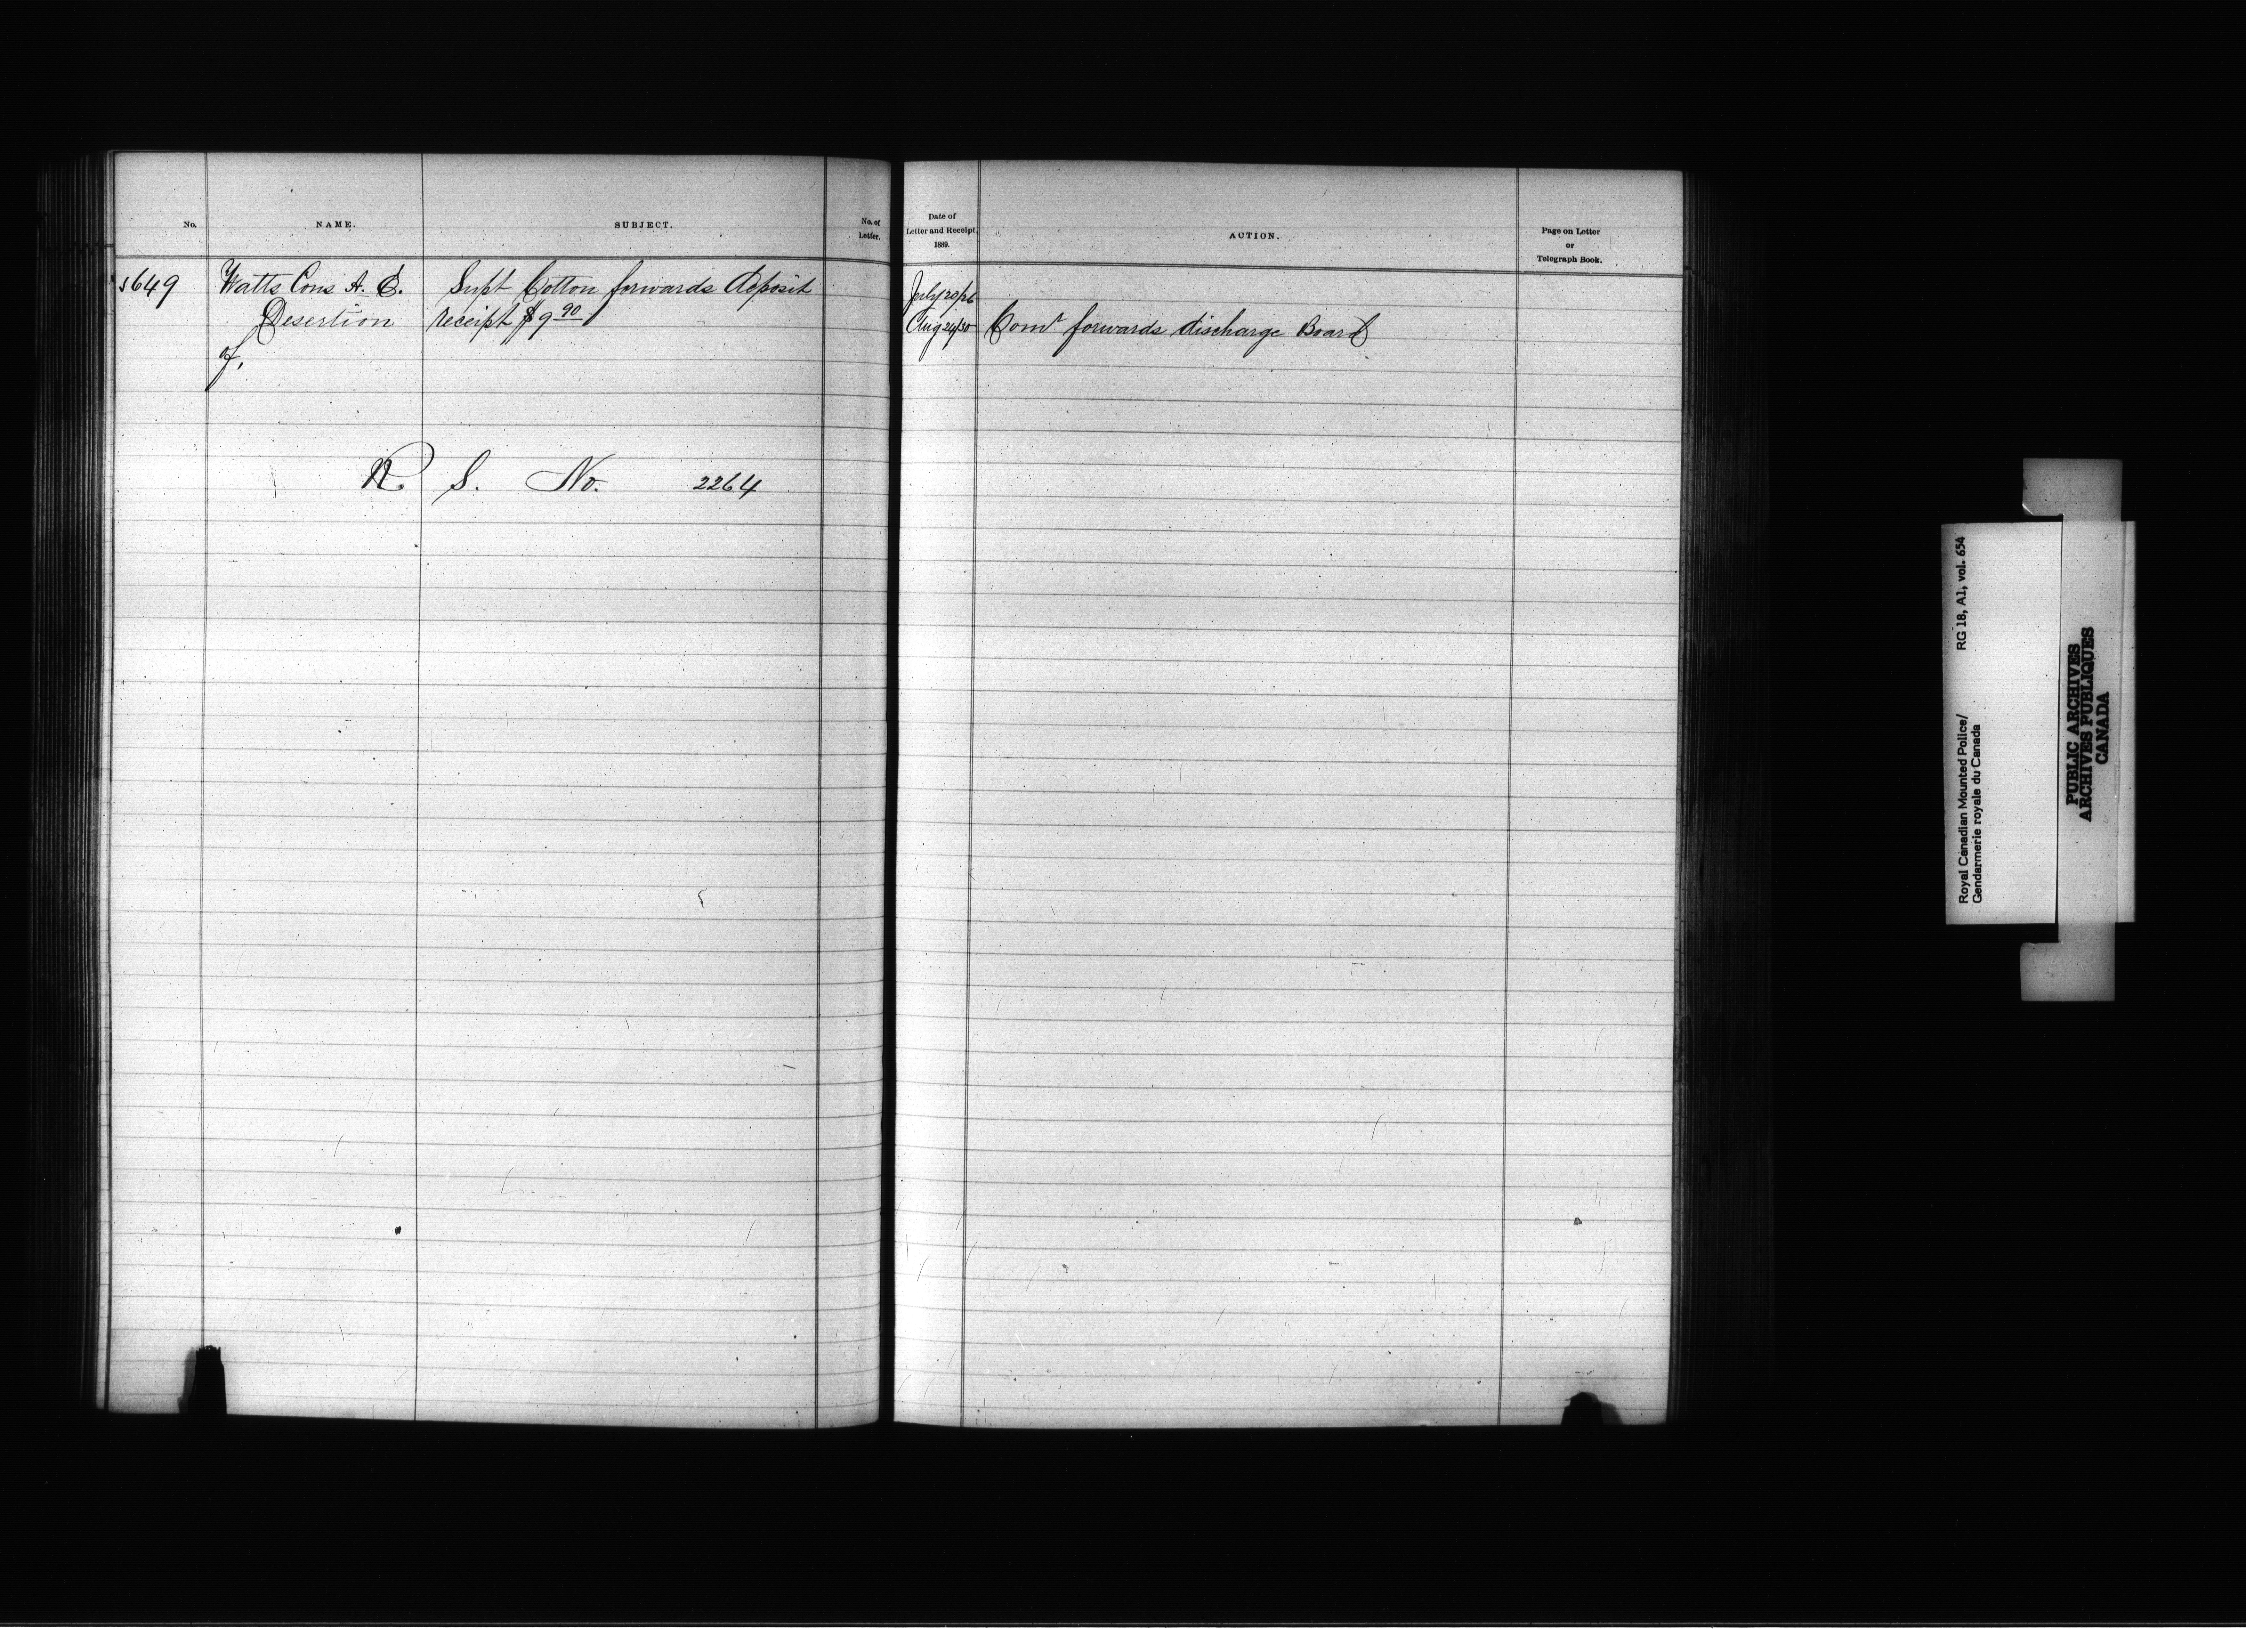 No.
NAME.
SUBJECT.
No. of
Letter.
5649
Watts Cons A. E.
Desertion
of,
Supt Cotton forwards deposit
receipt $9 90
R S. No. 2264
Date of
Letter and Receipt,
1889.
ACTION.
Page on Letter
or
Telegraph Book.
July 20/26
Aug 24/30 Comr forwards discharge Board
Royal Canadian Mounted Police/ RG 18, A1, vol. 654
Gendarmerie royale du Canada
PUBLIC ARCHIVES
ARCHIVES PUBLIQUES
CANADA